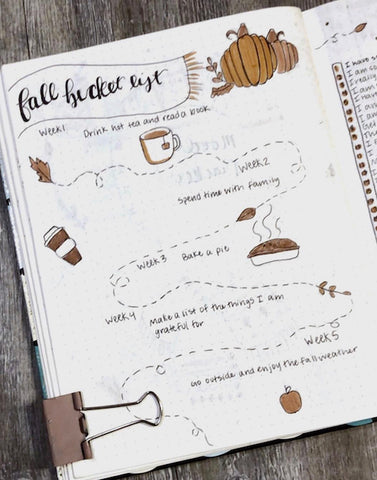 fall bucket list
Week 1
Drink hot tea and read a book
Week 2
Spend time with family
Week 3
Bake a pie
Week 4
Make a list of the things I am
grateful for
Week 5
Go outside and enjoy the fall weather
I have s
I am so
I really
I am
I have
I am
I am